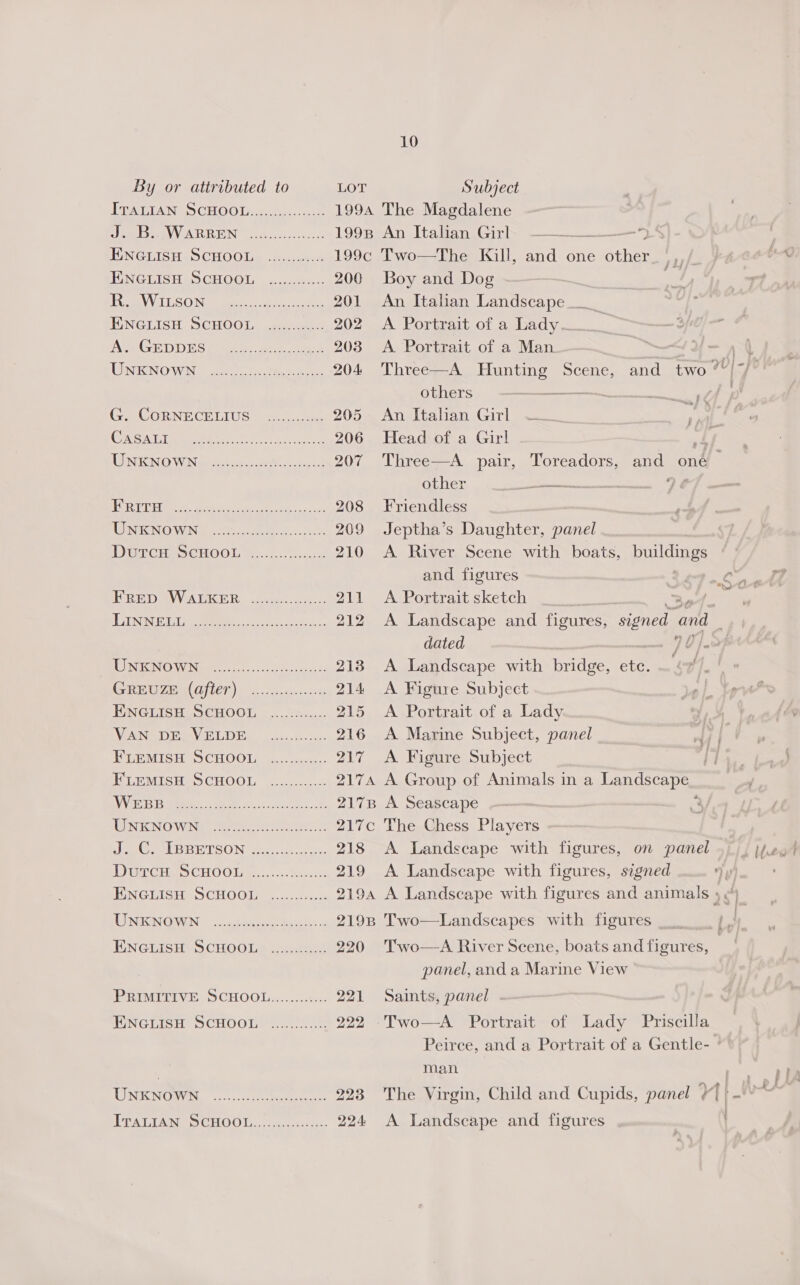 10
By or attributed to LOT Subject
ITALIAN SCHOOL............... 199A The Magdalene
J. B. WARREN ............... 199B An Italian Girl
ENGLISH SCHOOL ............ 199C Two—The Kill, and one other
ENGLISH SCHOOL ............ 200 Boy and Dog
R. WILSON .................. 201 An Italian Landscape
ENGLISH SCHOOL ............ 202 A Portrait of a Lady
A. GEDDES .................. 203 A Portrait of a Man
UNKNOWN ..................... 204 Three—A Hunting Scene, and two
others
G. CORNECELIUS ............ 205 An Italian Girl
CASALI ........................ 206 Head of a Girl
UNKNOWN ..................... 207 Three—A pair, Toreadors, and one
other
FRITH ........................ 208 Friendless
UNKNOWN ..................... 209 Jeptha's Daughter, panel
DUTCH SCHOOL ............... 210 A River Scene with boats, buildings
and figures
FRED WALKER ............... 211 A Portrait sketch
LINNELL ..................... 212 A Landscape and figures, signed and
dated
UNKNOWN ..................... 213 A Landscape with bridge, etc.
GREUZE (after) ............... 214 A Figure Subject
ENGLISH SCHOOL ............ 215 A Portrait of a Lady
VAN DE VELDE ............ 216 A Marine Subject, panel
FLEMISH SCHOOL ............ 217 A Figure Subject
FLEMISH SCHOOL ............ 217A A Group of Animals in a Landscape
WEBB ........................ 217B A Seascape
UNKNOWN ..................... 217C The Chess Players
J. C. IBBETSON ............... 218 A Landscape with figures, on panel
DUTCH SCHOOL ............... 219 A Landscape with figures, signed
ENGLISH SCHOOL ............ 219A A Landscape with figures and animals
UNKNOWN ..................... 219B Two—Landscapes with figures
ENGLISH SCHOOL ............ 220 Two—A River Scene, boats and figures,
panel, and a Marine View
PRIMITIVE SCHOOL............ 221 Saints, panel
ENGLISH SCHOOL ............ 222 Two—A Portrait of Lady Priscilla
Peirce, and a Portrait of a Gentle-
man
UNKNOWN ..................... 223 The Virgin, Child and Cupids, panel
ITALIAN SCHOOL............... 224 A Landscape and figures